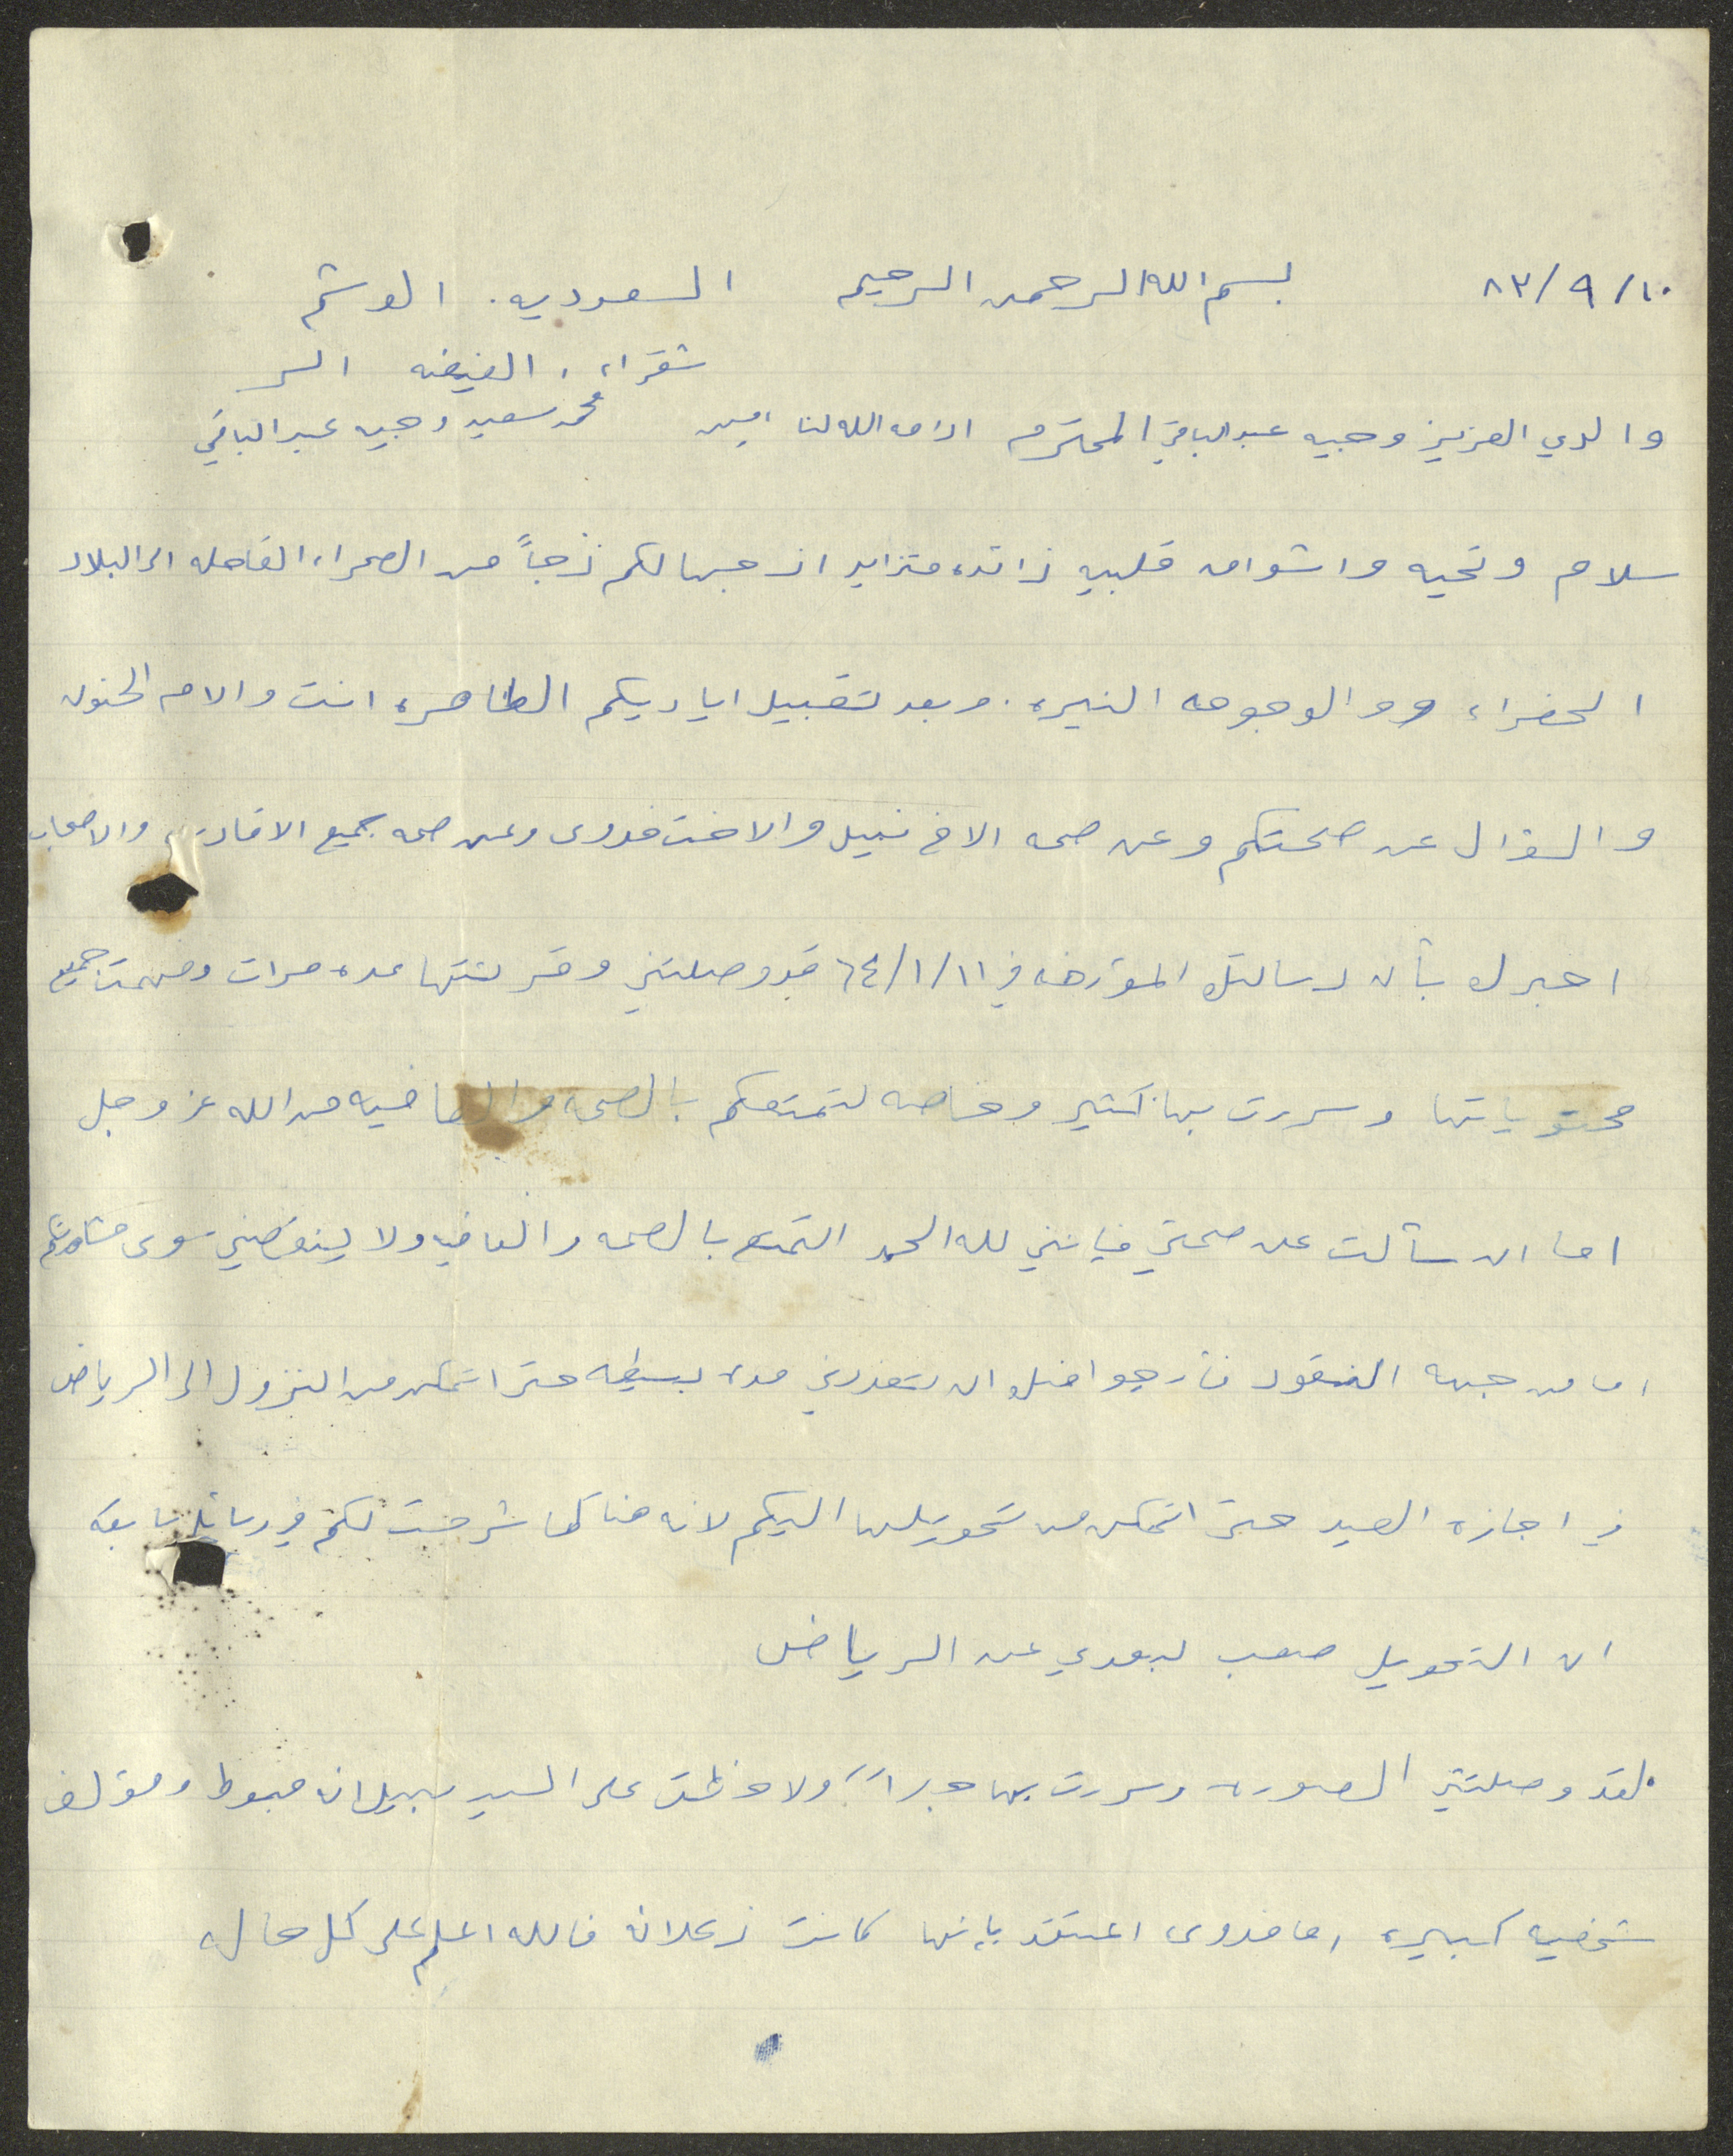 ٨٣/٩/١٠ بسم الله الرحمن الرحيم السعوديه. الوشم
شقراء، الفيضه السر
والدي العزيز وجيه عبد الباقي المحترم ادامه الله لنا امين محمد سعيد وجيه عبد الباقي
سلام وتحيه واشواق قلبيه زائده متزايد ازجها لكم زجاً من الصحراء القاحله الى البلاد
الخضراء وو الوجوه النيره. وبعد تقبيل اياديكم الطاهره انت والام الحنون
والسؤال عن صحتكم وعن صحه الاخ نبيل والاخت فدوى وعن صحه جميع الاقارب والاصحاب
اخبرك بأن رسالتك المؤرخه في ٦٤/١/١١ قد وصلتني وقرئتها عده مرات وفهمت جميع
محتوياتها وسررت بها كثير وخاصه لتمتعكم بالصحه والعافيه من الله عز وجل
اما ان سألت عن صحتي فإنني لله الحمد اتمتع بالصحه والعافيه ولا ينقصني سوى مشاهدتكم
اما من جهه النقود فأرجو افضل ان تعذرني مده بسيطه حتى اتمكن من النزول الى الرياض
في اجازه العيد حتى اتمكن من تحويلها اليكم لانه هنا كما شرحت لكم في رسائل سابقه
ان التحويل صعب لبعدي عن الرياض
لقد وصلتني الصوره وسررت بها جداً ولاحظت على السيد نبيل انه مبوط ومؤلف
شخصيه كبيره اما فدوى اعتقد بإنها كانت زعلانه فالله اعلم على كل حال